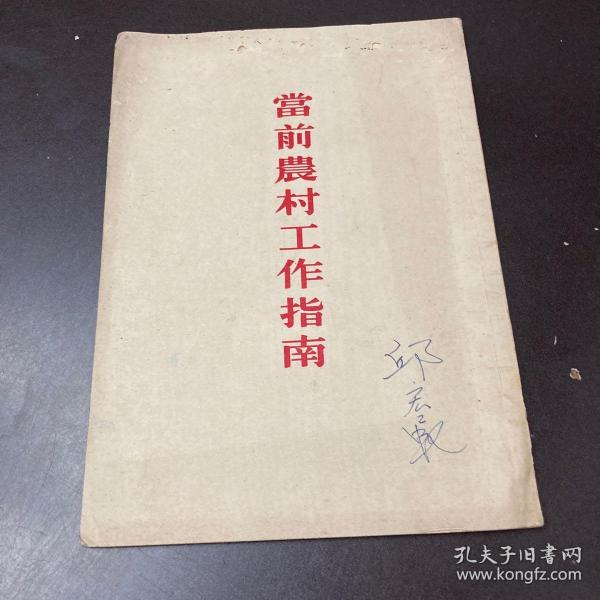 當前農村工作指南
邱宏
孔夫子旧书网
www.kongfz.com